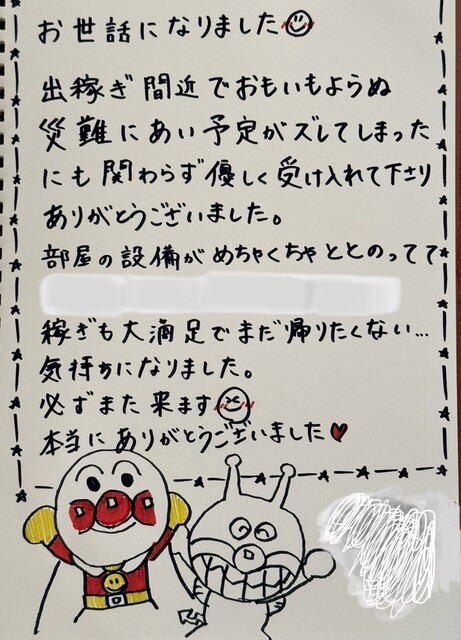 お世話になりました
出稼ぎ間近でおもいもよらぬ
災難にあい予定がズレてしまった
にも関わらず優しく受け入れて下さり
ありがとうございました。
部屋の設備がめちゃくちゃととのってて
稼ぎも大満足でまだ帰りたくない…
気持ちになりました。
必ずまた来ます
本当にありがとうございました♥